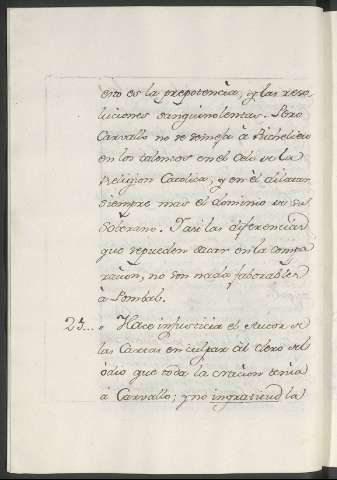 esto es la prepotencia, y las reso-
luciones sanguinolentas. Pero
Carvallo no se semeja à Richelieu
en los talentos en el Celo de la
Religion Catolica, y en èl dilatar
siempre mas el dominio de su
Soberano. Y asi las diferencias
que se pueden dàr en la compa
racion, no son nada faborables
à Pombal.
25... " Hace injusticia el Autor de
las Cartas en culpar àl Clero del
òdio que toda la Nacion tenia
à Carvallo; y no ingratitud la